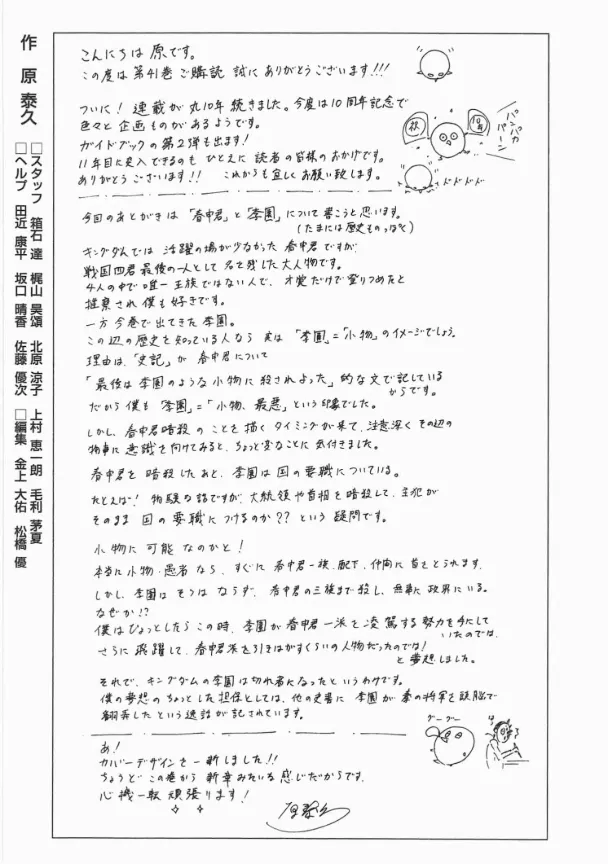 作 原 泰久
□スタッフ 箱石 達 梶山 昊頌 北原 涼子 上村 恵一朗 毛利 茅夏
□ヘルプ 田近 康平 坂口 晴香 佐藤 優次 □編集 金上 大佑 松橋 優
こんにちは 原です。
この度は 第41巻 ご購読 誠に ありがとうございます!!!
ついに! 連載が 丸10年 続きました。今度は10周年記念で
色々と 企画ものが あるようです。
ガイドブックの 第2弾も出ます!
11年目に突入できるのも ひとえに 読者の皆様のおかげです。
ありがとう ございます!! これからも宜しくお願い致します。
パンパカパーン
祝
10周年
ドドドド
今回のあとがきは 「春申君」と「李園」について書こうと思います。
(たまには歴史ものっぽく)
キングダムでは 活躍の場が少なかった 春申君ですが、
戦国四君 最後の一人として 名を残した大人物です。
4人の中で唯一 王族ではない人で、才覚だけで登りつめたと
推察され 僕も好きです。
一方 今巻で出てきた 李園。
この辺の歴史を知っている人なら 実は 「李園」=「小物」のイメージでしょう。
理由は、「史記」が 春申君について
「最後は 李園のような 小物に 殺されよった」的な文で記している
からです。
だから 僕も 「李園」=「小物、最悪」という印象でした。
しかし、春申君暗殺 のことを 描く タイミングが来て、注意深く その辺の
物事に 意識を向けてみると、ちょっと変なことに 気付きました。
春申君を 暗殺したあと、李園は 国の要職についている。
たとえば! 物騒な話ですが、大統領や首相を暗殺して、主犯が
そのまま 国の要職に つけるのか?? という 疑問です。
小物に 可能 なのかと!
本当に小物・愚者 なら、すぐに 春申君一族、配下、仲間に 首をとられます。
しかし、李園は そうは ならず、春申君の三族まで殺し、無事に 政界にいる。
なぜか!?
僕は ひょっとしたら この時、李園が 春申君 一派を 凌駕する 努力を 力にして
いたのでは、
さらに 飛躍して、春申君派を引きはがすくらいの人物だったのでは!
と 夢想しました。
それで、キングダムの李園は 切れ者になったというわけです。
僕の夢想の ちょっとした担保としては、他の史書に 李園が 秦の将軍を 頭脳で
翻弄した という 逸話が 記されています。
あ!
カバーデザインを 一新しました!!
ちょうど この巻から 新章みたいな 感じだからです。
心機一転 頑張ります!
グーグー
原泰久